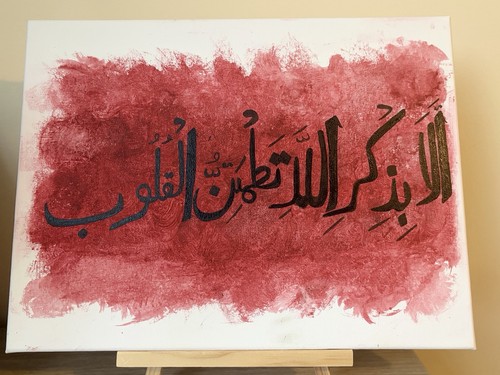 أَلَا بِذِكْرِ اللَّهِ تَطْمَئِنُّ الْقُلُوب